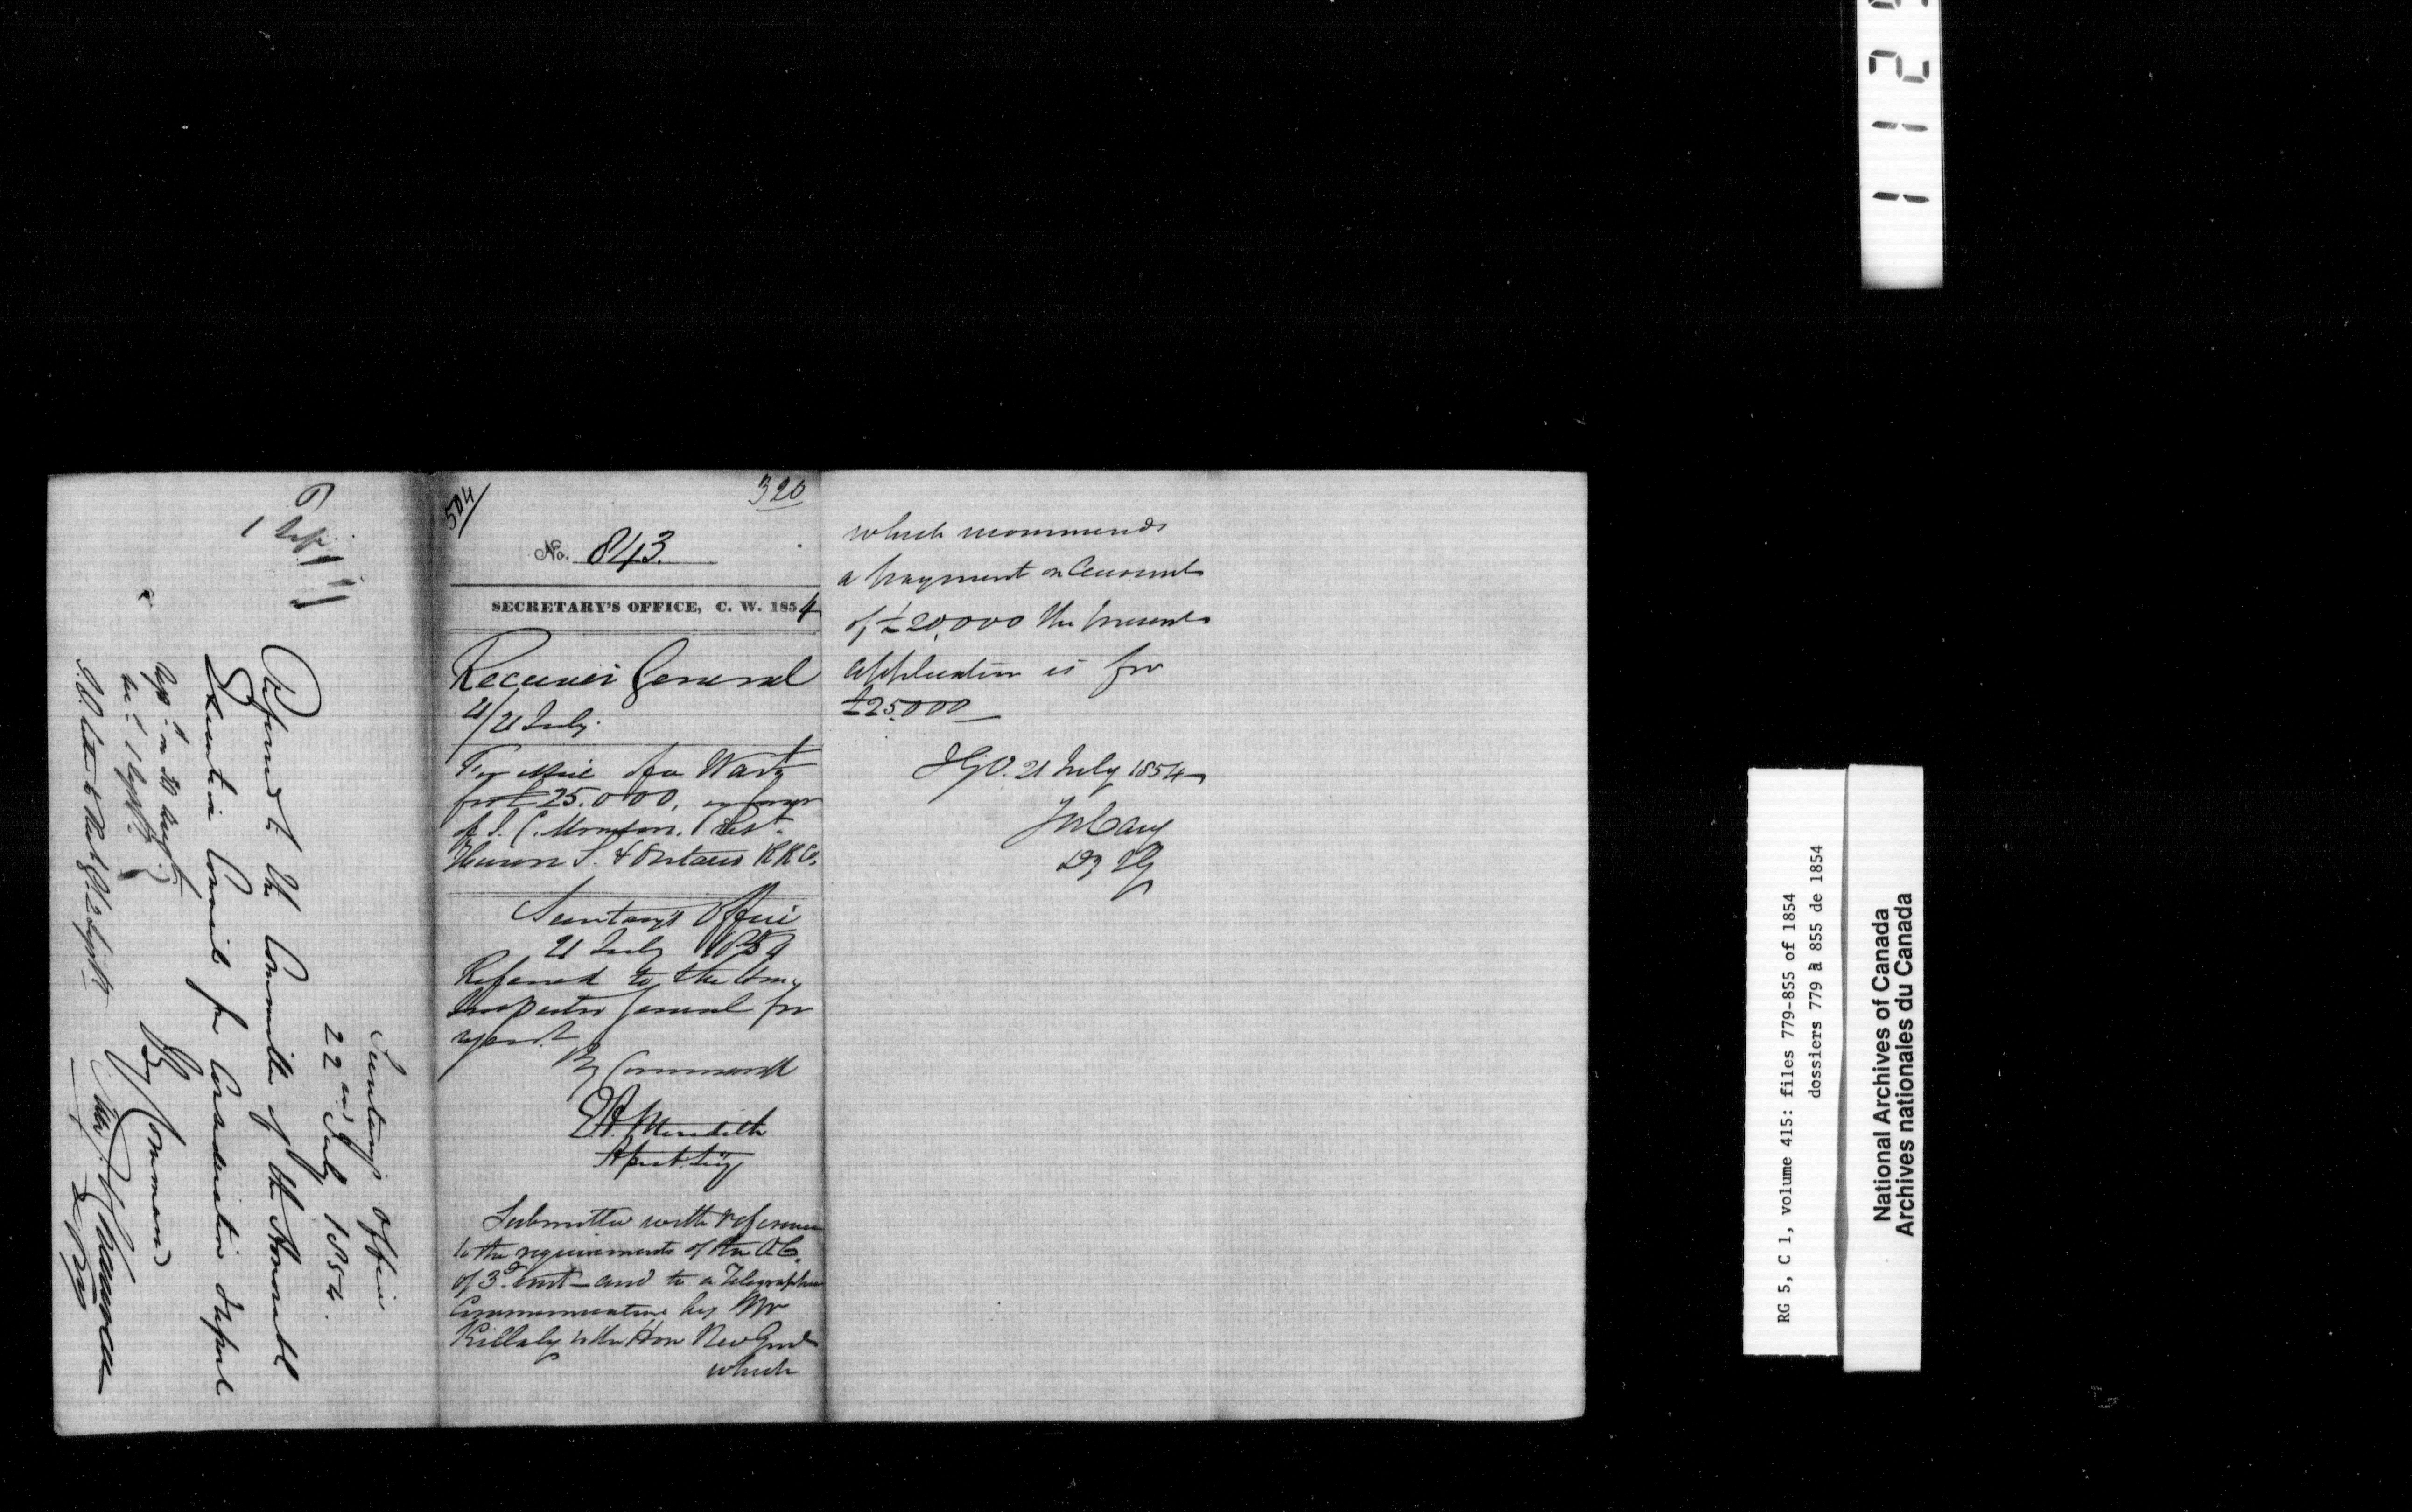 504/
320
No. 843.
SECRETARY'S OFFICE, C. W. 1854
Receiver General
21/21 July.
For issue of a Wart
for £25.000. in favor
of J. C. Morrison. Prest.
Huron S. & Ontario RR Co.
Secretary's Office
21 July 1854
Referred to the Hon.
Inspector General for
report.
By Command
E. A. Meredith
Asst. Secy
Submitted with reference
to the requirements of the O.C.
of 3d inst - and to a Telegraphic
Communication by Mr
Killaly to the Hon Rec Genl
which
which recommends
a payment on Account
of £20,000 the present
application is for
£25000
I.G.O. 21 July 1854
Jos Cary
Dy IG
Secretary's Office
22nd July 1854.
Referred to the Committee of the Honorable
Executive Council for Consideration & Report
By Command
1 Sept
RG 5, C 1, volume 415: files 779-855 of 1854
dossiers 779 à 855 de 1854
National Archives of Canada
Archives nationales du Canada
112